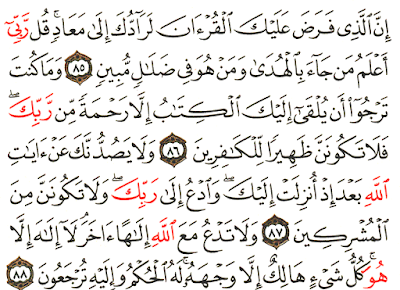 إِنَّ ٱلَّذِى فَرَضَ عَلَيْكَ ٱلْقُرْءَانَ لَرَآدُّكَ إِلَىٰ مَعَادٍۢ ۚ قُل رَّبِّىٓ
أَعْلَمُ مَن جَآءَ بِٱلْهُدَىٰ وَمَنْ هُوَ فِى ضَلَـٰلٍۢ مُّبِينٍۢ ٨٥ وَمَا كُنتَ
تَرْجُوٓا۟ أَن يُلْقَىٰٓ إِلَيْكَ ٱلْكِتَـٰبُ إِلَّا رَحْمَةًۭ مِّن رَّبِّكَ ۖ
فَلَا تَكُونَنَّ ظَهِيرًۭا لِّلْكَـٰفِرِينَ ٨٦ وَلَا يَصُدُّنَّكَ عَنْ ءَايَـٰتِ
ٱللَّهِ بَعْدَ إِذْ أُنزِلَتْ إِلَيْكَ ۖ وَٱدْعُ إِلَىٰ رَبِّكَ ۖ وَلَا تَكُونَنَّ مِنَ
ٱلْمُشْرِكِينَ ٨٧ وَلَا تَدْعُ مَعَ ٱللَّهِ إِلَـٰهًا ءَاخَرَ ۘ لَآ إِلَـٰهَ إِلَّا
هُوَ ۚ كُلُّ شَىْءٍ هَالِكٌ إِلَّا وَجْهَهُۥ ۚ لَهُ ٱلْحُكْمُ وَإِلَيْهِ تُرْجَعُونَ ٨٨